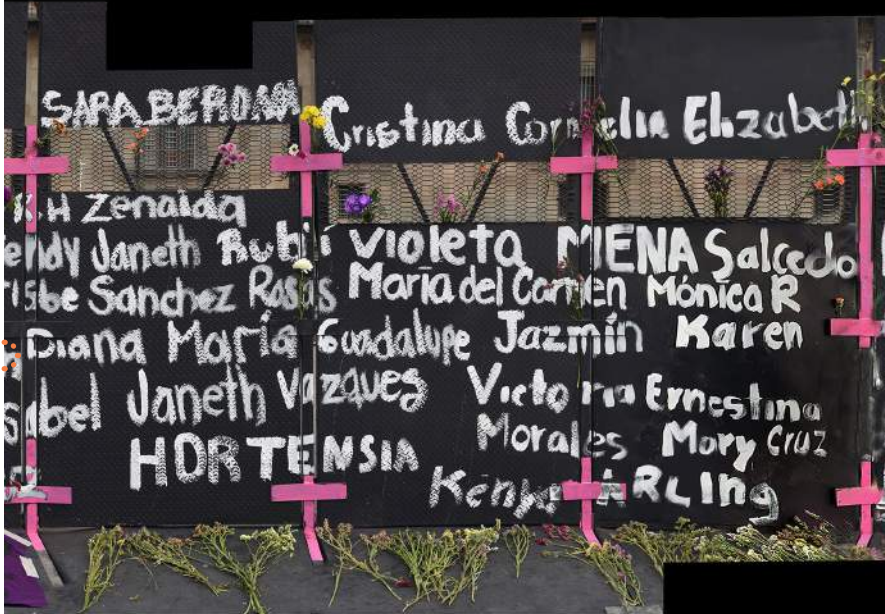 SARA BERONA Cristina Cornelia Elizabeth
K.H Zenaida
Janeth Rubí Violeta MENA Salcedo
Sanchez Rosas María del Carmen Mónica R
Diana María Guadalupe Jazmín Karen
Janeth Vazques Victoria Ernestina
HORTENSIA Morales Mory Cruz
ARLIng